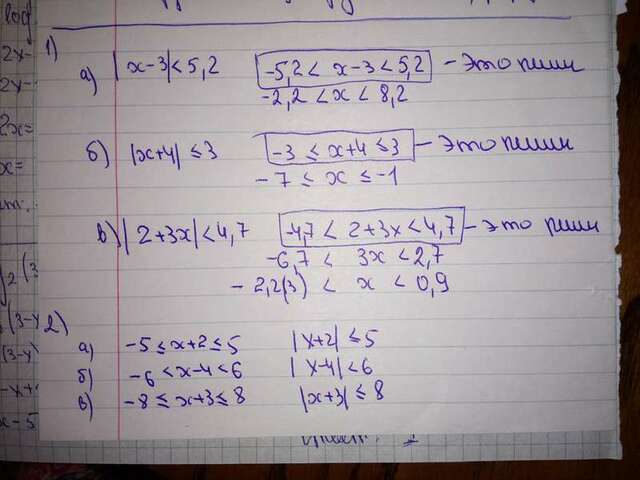 1)
а) |x-3|<5,2 -5,2 < x-3 < 5,2 - Это пиши
-2,2 < x < 8,2
б) |x+4| ≤ 3 -3 ≤ x+4 ≤ 3 - Это пиши
-7 ≤ x ≤ -1
в) |2+3x|<4,7 -4,7 < 2+3x < 4,7 - это пиши
-6,7 < 3x < 2,7
-2,2(3) < x < 0,9
2)
а) -5 ≤ x+2 ≤ 5 |x+2| ≤ 5
б) -6 < x-4 < 6 |x-4| < 6
в) -8 ≤ x+3 ≤ 8 |x+3| ≤ 8